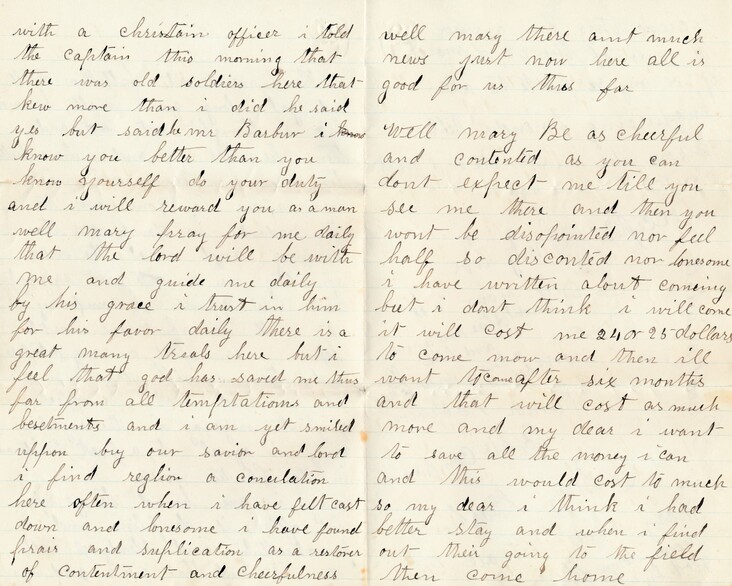 with a christain officer i told
the captain this morning that
there was old soldiers here that
kew more than i did he said
yes but said he mr Barbur i know
know you better than you
know yourself do your duty
and i will reward you as a man
well mary pray for me daily
that the lord will be with
me and guide me daily
by his grace i trust in him
for his favor daily there is a
great many trials here but i
feel that god has saved me thus
far from all temptations and
besetments and i am yet smiled
uppon buy our savior and lord
i find reglion a concilation
here often when i have felt cast
down and lonesome i have found
prair and suplication as a restorer
of contentment and cheerfulness
well mary there aint much
news just now here all is
good for us thus far
Well mary Be as cheerful
and contonted as you can
dont expect me till you
see me there and then you
wont be disopointed nor feel
half so disconted nor lonesome
i have written about comeing
but i dont think i will come
it will cost me 24 or 25 dollars
to come now and then ill
want to come after six months
and that will cost as much
more and my dear i want
to save all the money i can
and this would cost to much
so my dear i think i had
better stay and when i find
out their going to the field
then come home